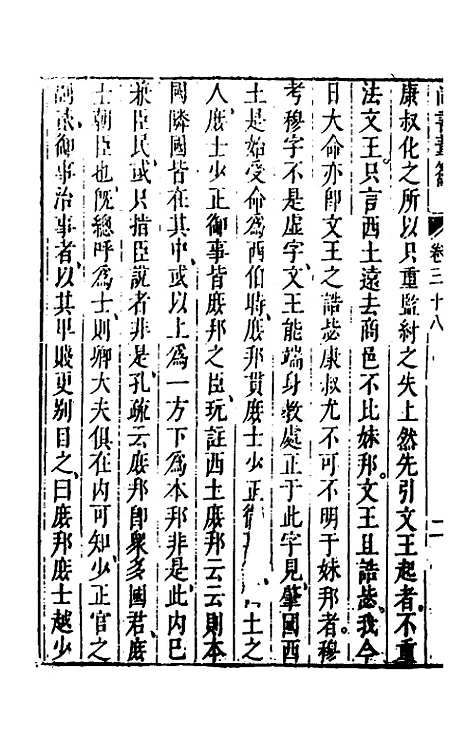 尚書葦籥 卷三十八 二
康叔化之所以只重監紂之失上然先引文王起者不重
法文王只言西土遠去商邑不比妹邦文王且誥毖我今
日大命亦卽文王之誥毖康叔尤不可不明于妹邦者穆
考穆字不是虛字文王能端身敎處正于此字見肇國西
土是始受命爲西伯時庶邦貫庶士少正御 土之
人庶士少正御事皆庶邦之臣玩註西土庶邦云云則本
國隣國皆在其中或以上爲一方下爲本邦非是此內巳
兼臣民或只指臣說者非是孔疏云庶邦卽衆多國君庶
士朝臣也旣總呼爲士則卿大夫俱在內可知少正官之
副貳御事治事者以其卑賤更別目之曰庶邦庶士越少